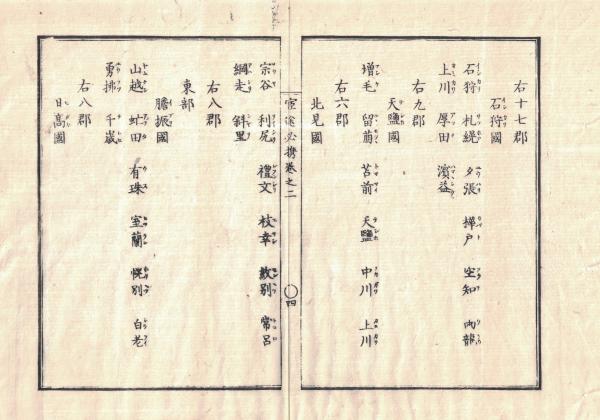 右十七郡
石狩國
石狩 札縨 夕張 樺戸 空知 雨龍
上川 厚田 濱益
右九郡
天鹽國
増毛 留萠 苫前 天鹽 中川 上川
右六郡
北見國
宦途必携巻之二 四
宗谷 利尻 禮文 枝幸 紋別 常呂
網走 斜里
右八郡
東部
膽振國
山越 虻田 有珠 室蘭 幌別 白老
勇拂 千歳
右八郡
日高國